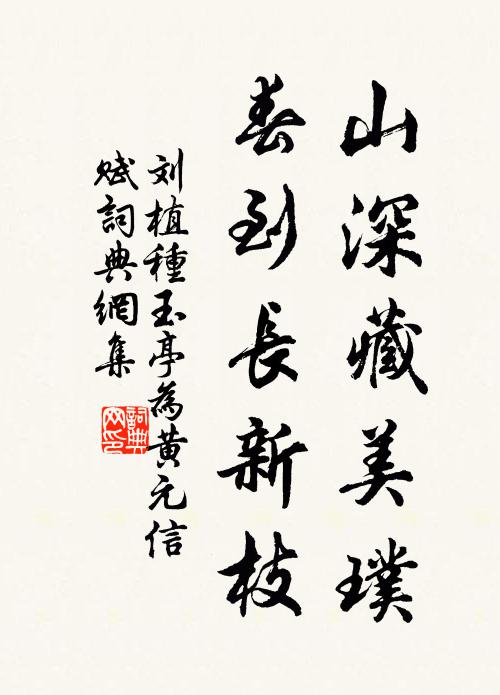 山深藏美璞
春到長新枝
刘植種玉亭為黄元信
賦詞典網集
詞典
网印